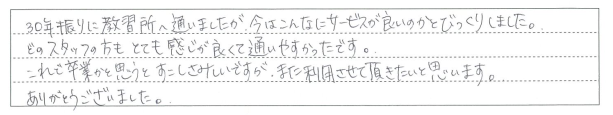 30年振りに教習所へ通いましたが、今はこんなにサービスが良いのかとびっくりしました。
どのスタッフの方も とても感じが良くて通いやすかったです。
これで卒業かと思うと すこしさみしいですが、また利用させて頂きたいと思います。
ありがとうございました。